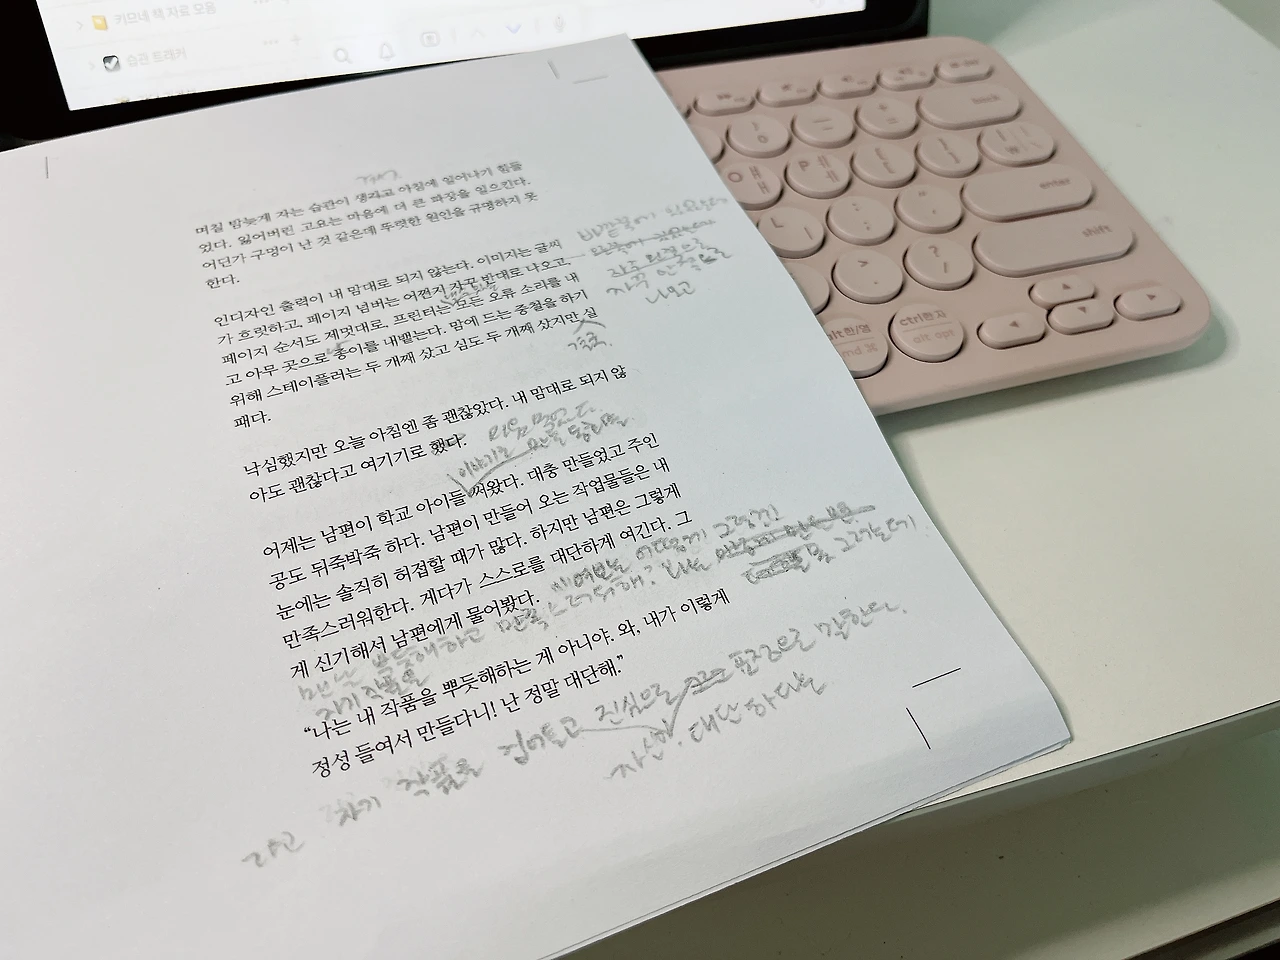 키므네 책 자료 모음
습관 트래커
며칠 밤늦게 자는 습관이 쟁기고 아침에 일어나기 힘들
었다. 잃어버린 고요는 마음에 더 큰 파장을 일으킨다.
어딘가 구멍이 난 것 같은데 뚜렷한 원인을 규명하지 못
한다.
인디자인 출력이 내 맘대로 되지 않는다. 이미지는 글씨
가 흐릿하고, 페이지 넘버는 어쩐지 자꾼 반대로 나오고,
페이지 순서도 제멋대로, 프린터는 모든 오류 소리를 내
고 아무 곳으로 종이를 내뱉는다. 맘에 드는 중철을 하기
위해 스테이플러는 두 개째 샀고 심도 두 개째 샀지만 실
패다.
바깥쪽에
자꾸 안쪽으로
나오고
계속
낙심했지만 오늘 아침엔 좀 괜찮았다. 내 맘대로 되지 않
아도 괜찮다고 여기기로 했다.
마음 먹었다.
이야기로 만든
어제는 남편이 학교 아이들 써왔다. 대충 만들었고 주인
공도 뒤죽박죽 하다. 남편이 만들어 오는 작업물들은 내
눈에는 솔직히 허접할 때가 많다. 하지만 남편은 그렇게
만족스러워한다. 게다가 스스로를 대단하게 여긴다. 그
게 신기해서 남편에게 물어봤다.
여보는 어떻게 그렇게
맨날 뿌듯해하고 만족스러워해? 나는 못 그러는데
자기 작품을
“나는 내 작품을 뿌듯해하는 게 아니야. 와, 내가 이렇게
정성 들여서 만들다니! 난 정말 대단해.”
라고 자기 작품을 집어들고 진심으로 표정으로 말한다.
자신이 대단하다는
back
enter
shift
alt 한/영
cmd ⌘
ctrl 한자
alt opt